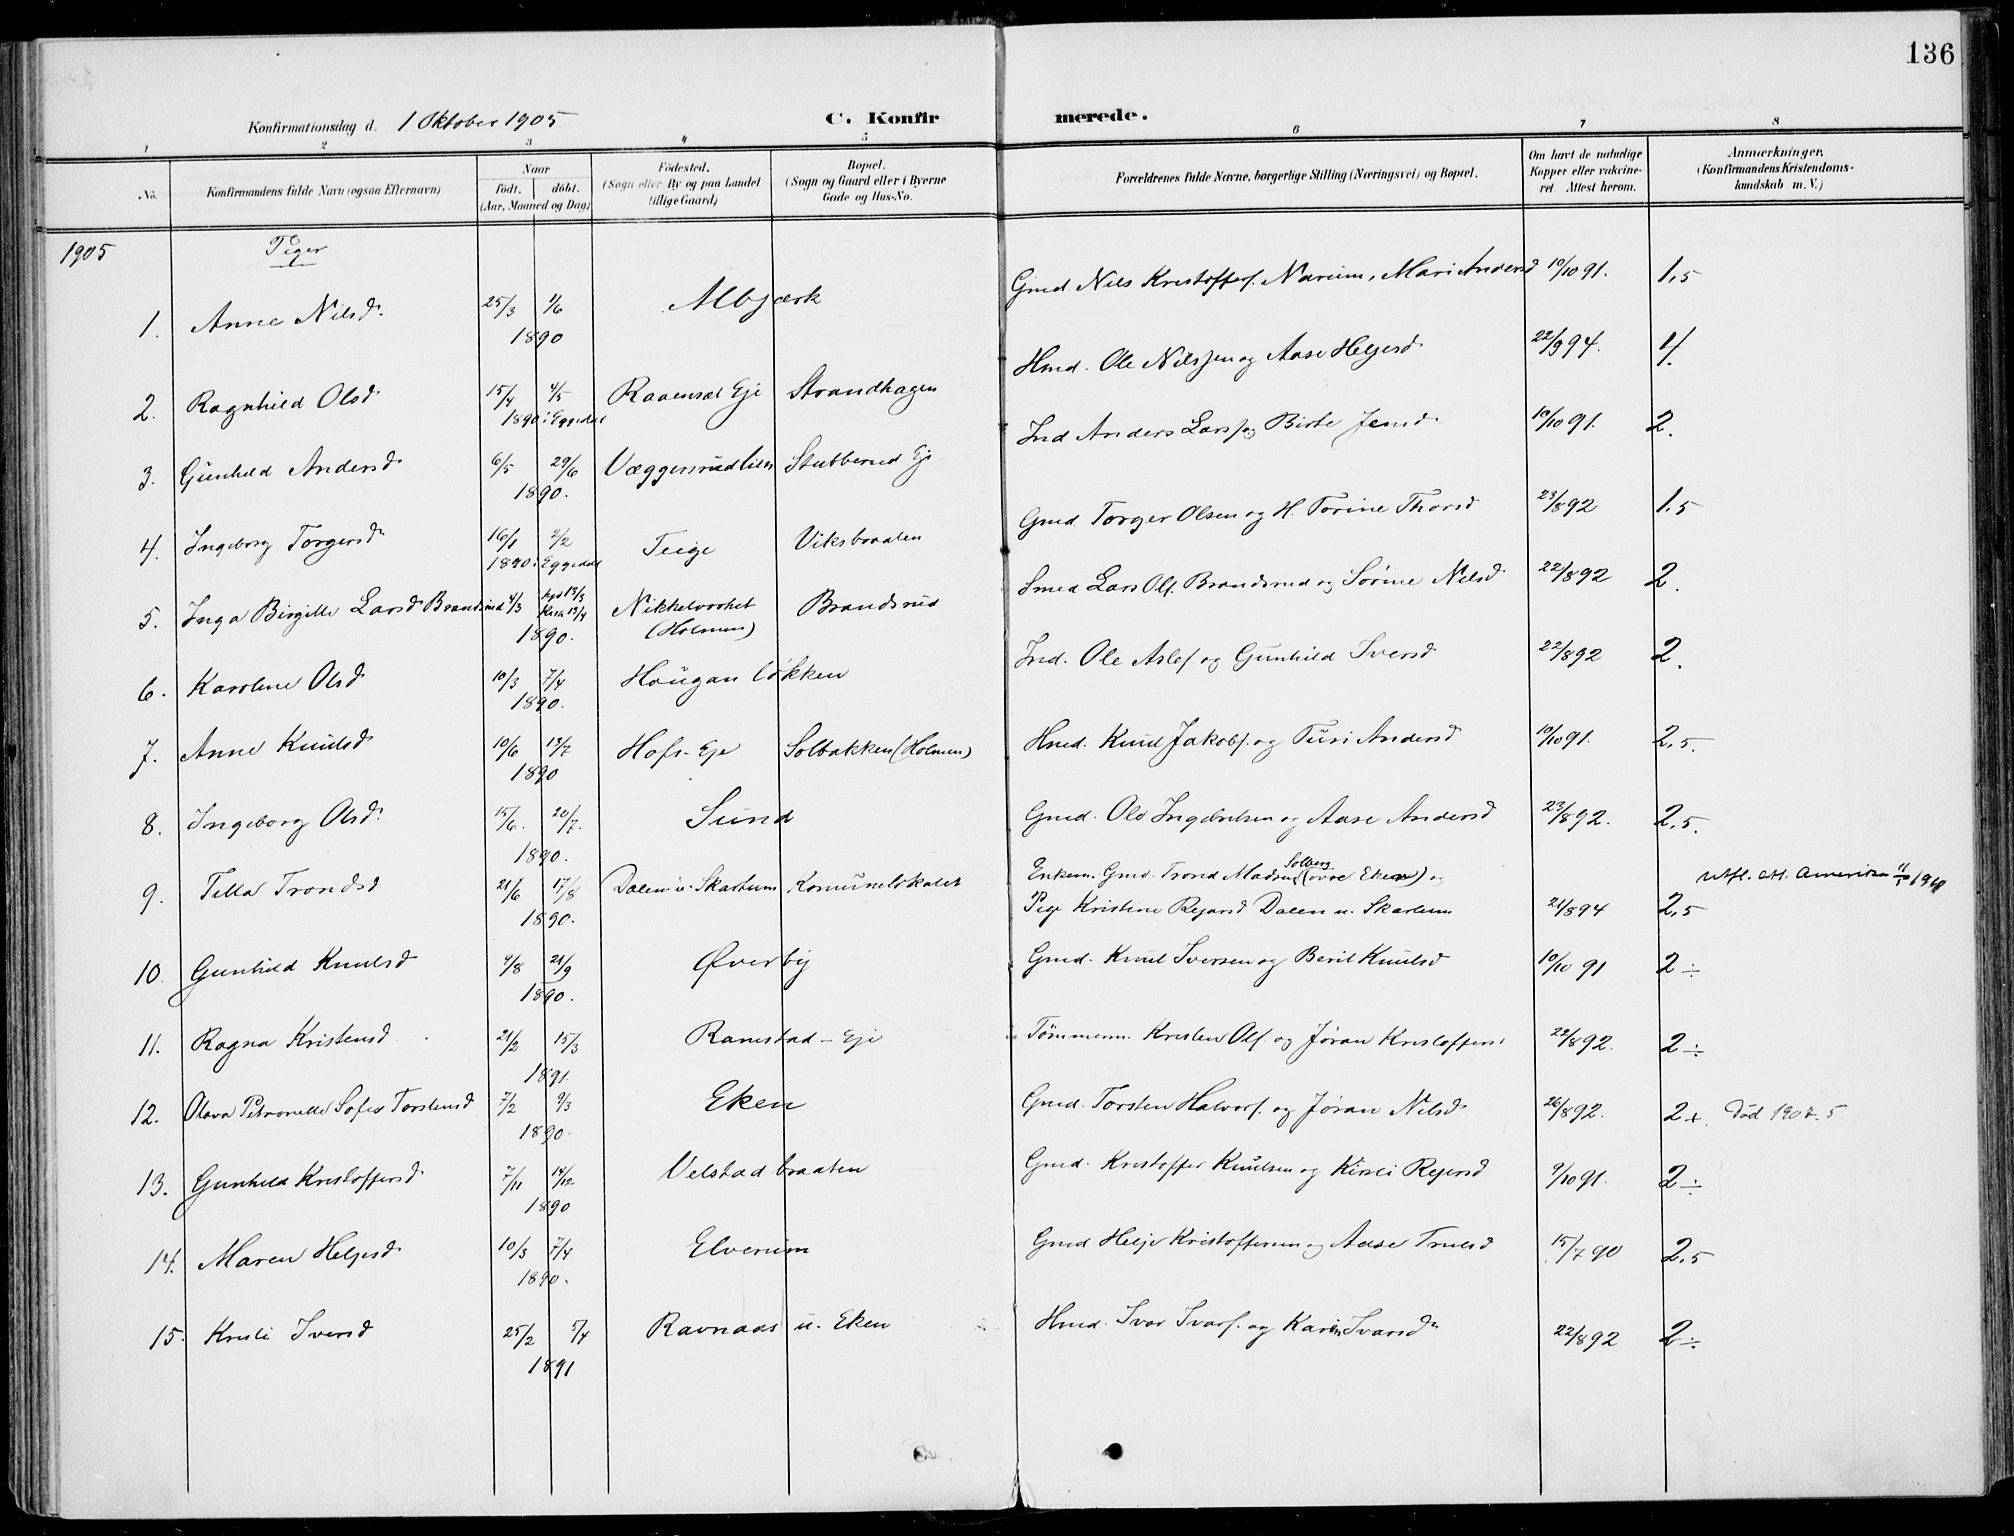 136
Konfirmationsdag d. 1 Oktober 1905
C. Konfirmerede.
1 2 3 4 5 6 7 8
No.
Konfirmandens fulde Navn (ogsaa Efternavn)
Naar
født. døbt.
(Aar, Maaned og Dag)
Fødested.
(Sogn eller By og paa Landet tillige Gaard)
Bopæl.
(Sogn og Gaard eller i Byerne Gade og Hus-No.
Forældrenes fulde Navne, borgerlige Stilling (Næringsvei) og Bopæl.
Om havt de naturlige Kopper eller vakcineret. Attest herom.
Anmærkninger.
(Konfirmandens Kristendomskundskab m. V.)
1905 Piger
1. Anne Nilsd. 25/3 1/6 1890 Albjærk Gmd. Nils Kristoffers. Narum, Mari Andersd 10/10 91. 1,5
2. Ragnhild Olsd 15/4 4/5 1890 i Eggedal Raaensæt Eje Strandhagen Hmd. Ole Nilssen og Aase Helgesd 22/9 94. 4.
3. Gunhild Andersd 6/5 29/6 1890. Væggersrudlien Stubberud Eje Ind Anders Lars. og Birte Jensd 10/10 91. 2.
4. Ingeborg Torgersd 16/1 2/2 1890 i Eggedal Teige Viksbraaten Gmd. Torger Olsen og H. Torine Thorsd 23/8 92 1,5
5. Inga Birgitte Larsd Brandsrud 4/3 Kirk 13/4 1890. Nikkelværket (Holmen) Brandsrud Smed Lars Ols. Brandsrud og Sørine Nilsd 22/8 92 2.
6. Karoline Olsd 10/3 7/4 1890. Hougan løkken Ind. Ole Aslef. og Gunhild Iversd 22/8 92 2.
7. Anne Knutsd 10/6 13/7 1890 Hofs-Eje Solbakken (Holmen) Hmd. Knut Jakobs. og Turi Andersd 10/10 91. 2,5.
8. Ingeborg Olsd. 15/6. 20/7. 1890. Sund Gmd. Ole Ingebretsen og Aase Andersd 23/8 92. 2,5.
9. Tilla Trondsd 21/6 17/8 1890. Dalen u. Skartum Komunelokalet Enkem. Gmd. Trond Madsen Solberg (øvre Eken) og
Pige Kristine Reiersd Dalen u. Skartum 21/8 94 2,5 Utfl. att. Amerika
10. Gunhild Knutsd 9/8 21/9 1890. Øverby Gmd. Knut Iversen og Berit Knutsd 10/10 91 2 ÷
11. Ragna Kristensd 21/2 15/3 1891. Ramstad - Eje Tømmerm. Kristen Ols. og Jøran Kristoffers. 22/8 92. 2 ÷
12. Olava Petronelle Sofie Torstensd 7/2 9/3 1890. Eken Gmd. Torsten Halvors. og Jøran Nilsd 26/8 92. 2 +. Død 1907. 5
13. Gunhild Kristoffersd 7/11 14/12 1890 Velstad braaten Gmd. Kristoffer Knutsen og Kirsti Reiersd 9/10 91. 2 ÷
14. Maren Helgesd 10/3 7/4 1890. Elverum Gmd Helge Kristoffersen og Aase Trulsd 15/7 90 2,5
15. Kristi Iversd 25/2 5/4 1891 Ravnaas u. Eken Hmd. Ivar Ivars. og Karen Ivarsd 22/8 92 2 ÷